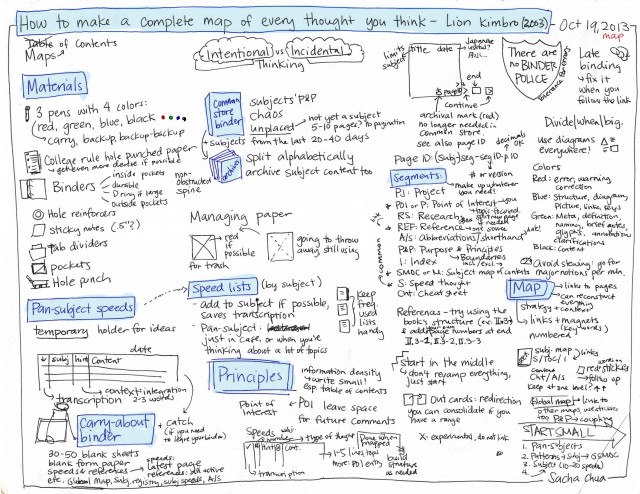 How to make a complete map of every thought you think - Lion Kimbro (2003) - Oct 19, 2013
map
Table of Contents
Maps
Intentional vs Incidental
Thinking
Materials
3 pens with 4 colors:
red, green, blue, black
carry, backup, backup-backup
College rule hole punched paper
get even more dense if possible
Binders
inside pockets
durable
D ring if large
outside pockets
non-obstructed spine
Hole reinforcers
sticky notes (.5"?)
tab dividers
pockets
Hole punch
Common store binder
subjects' P&P
chaos
unplaced
not yet a subject
5-10 pages? to pagination
+ subjects from the last 20-40 days
archive
split alphabetically
archive subject content too
Managing paper
red if possible
for trash
going to throw away still using
limits
subject
title
date
page #
end
continue
archival mark (red)
no longer needed in
Common Store
see also page ID
decimals OK
Page ID: (Subj)seg-seq ID-p ID
# or version
There are no BINDER POLICE
Late binding
fix it when you follow the link
Divide when big.
use diagrams everywhere!
Segments:
make you whatever you needed
PJ: Project
POI or P: Point of Interest
RS: Research
REF: Reference
one source
A/S: Abbreviations/shorthand
P&P: Purpose & Principles
Boundaries
incl/excl.
I: Index
SMOC or M: Subject map of contents
S: Speed thought
Cht: Cheat sheet
common
Colors
Red: error, warning, correction
Blue: Structure, diagram, picture, links, keys
Green: Meta, definition, naming, brief notes, glyphs, annotations, clarifications
Black: Content
Avoid stewing: go for major notions per min.
Pan-subject speeds
temporary holder for ideas
date
Subj
hint
Content
transcription
context-integration
2-3 words
Speed lists (by subject)
- add to Subject if possible, saves transcription
- Pan-subject:
just in case, or when you're thinking about a lot of topics
keep freq. used lists handy
References - try using the book's structure (ex: II.3)
& add page numbers at end
II.3-1, II.3-2, II.3-3
Map
links to pages
can reconstruct everything
strategy + context
links + magnets
(key words)
numbered
sub-map
S/TOC/I
links
red stickies
follow up
Cht/A/S
keep at one level?
Global map
link to other maps
Principles
information density
write small!
esp. table of contents
Point of Interest
POI
leave space for future comments
Start in the middle
don't revamp everything, just start
Out cards: redirection
you can consolidate if you have a range
X: experimental, do not link
Carry-about binder
+ catch
(if you need to leave your binder)
30-50 blank sheets
blank form paper
speeds & references
etc.
speeds: latest page
references: all active
Global map, subj. registry, subj speeds, A/S
Speeds
type of thought
Done when mapped
Hint
Cont.
transcription
1-5 lines, tops
more: POI entry
build structure as needed
START SMALL
1. Pan-subjects
2. Patterns → Subj → GSMOC
3. Subject (10-20 speeds)
4.
Sacha Chua